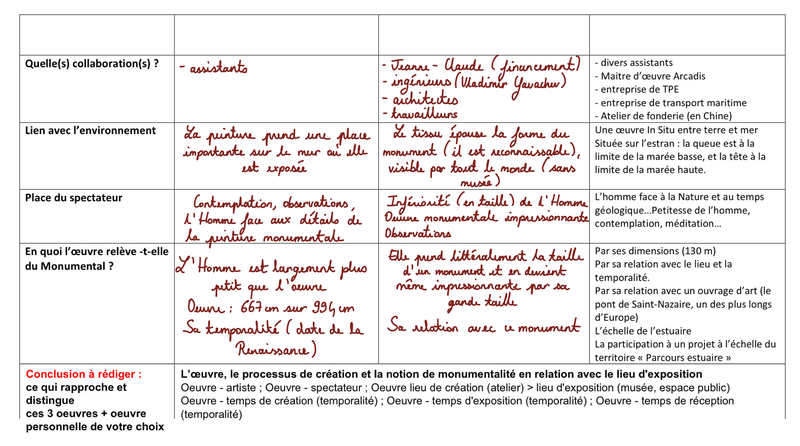 Quelle(s) collaboration(s) ?
- assistants
- Jeanne-Claude (financement)
- ingénieurs (Vladimir Yavachev)
- architectes
- travailleurs
- divers assistants
- Maitre d'œuvre Arcadis
- entreprise de TPE
- entreprise de transport maritime
- Atelier de fonderie (en Chine)
Lien avec l'environnement
La peinture prend une place
importante sur le mur où elle
est exposée
Le tissu épouse la forme du
monument (il est reconnaissable),
visible par tout le monde (sans
musée)
Une œuvre In Situ entre terre et mer
Située sur l'estran : la queue est à la
limite de la marée basse, et la tête à la
limite de la marée haute.
Place du spectateur
Contemplation, observations,
l'Homme face aux détails de
la peinture monumentale
Infériorité (en taille) de l'Homme
Oeuvre monumentale impressionnante
Observations
L'homme face à la Nature et au temps
géologique…Petitesse de l'homme,
contemplation, méditation…
En quoi l'œuvre relève -t-elle
du Monumental ?
L'Homme est largement plus
petit que l'oeuvre
Oeuvre : 667 cm sur 994 cm
Sa temporalité (date de la
Renaissance)
Elle prend littéralement la taille
d'un monument et en devient
même impressionnante par sa
grande taille
Sa relation avec ce monument
Par ses dimensions (130 m)
Par sa relation avec le lieu et la
temporalité.
Par sa relation avec un ouvrage d'art (le
pont de Saint-Nazaire, un des plus longs
d'Europe)
L'échelle de l'estuaire
La participation à un projet à l'échelle du
territoire « Parcours estuaire »
Conclusion à rédiger :
ce qui rapproche et
distingue
ces 3 oeuvres + oeuvre
personnelle de votre choix
L'œuvre, le processus de création et la notion de monumentalité en relation avec le lieu d'exposition
Oeuvre - artiste ; Oeuvre - spectateur ; Oeuvre lieu de création (atelier) > lieu d'exposition (musée, espace public)
Oeuvre - temps de création (temporalité) ; Oeuvre - temps d'exposition (temporalité) ; Oeuvre - temps de réception
(temporalité)